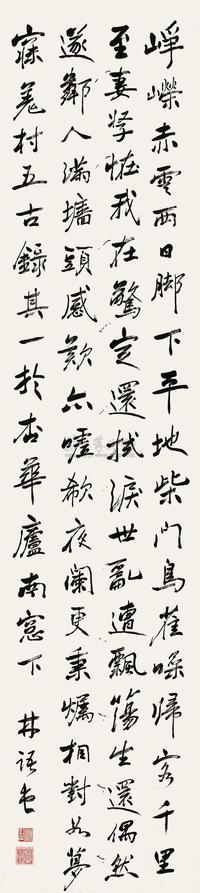 崢嶸赤雲西日脚下平地柴門鳥雀噪歸客千里
至妻孥怪我在驚定還拭淚世亂遭飄蕩生還偶然
遂鄰人滿墻頭感歎亦噓欷夜闌更秉爥相對如夢
寐羌村五古錄其一於杏華廬南窓下 林語堂